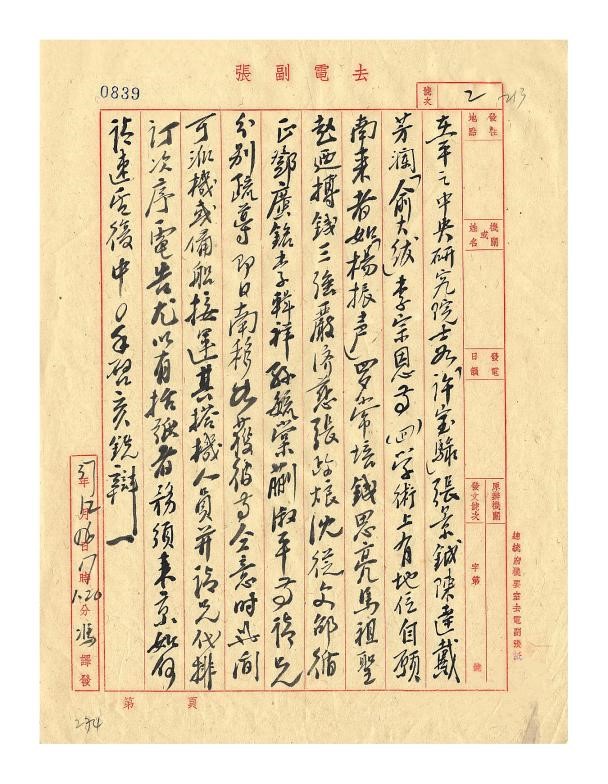 去電副張
0839
號次 2
213
發往地點
機關或姓名
發電日韻
原辦機關
發文號次
字第 號
在平之中央研究院士如「許寶騄」張景鉞陳達戴
芳瀾「俞大紱」李宗恩等(四)學術上有地位自願
南來者如「楊振声」羅常培錢思亮馬祖聖
趙迺摶錢三強嚴济慈張政烺沈從文邵循
正鄧廣銘李輯祥孫毓棠蒯淑平等請兄
分別疏導即日南移如獲彼等全意時迅洽
可派機或備船接運其搭機人員并請兄代排
訂次序電告尤以有括弧者務須来京如何
請速洽復中○手啓亥銑辯一
37年12月16日17時1.20分 馮 譯發
總統府機要室去電副張紙
第 頁
234